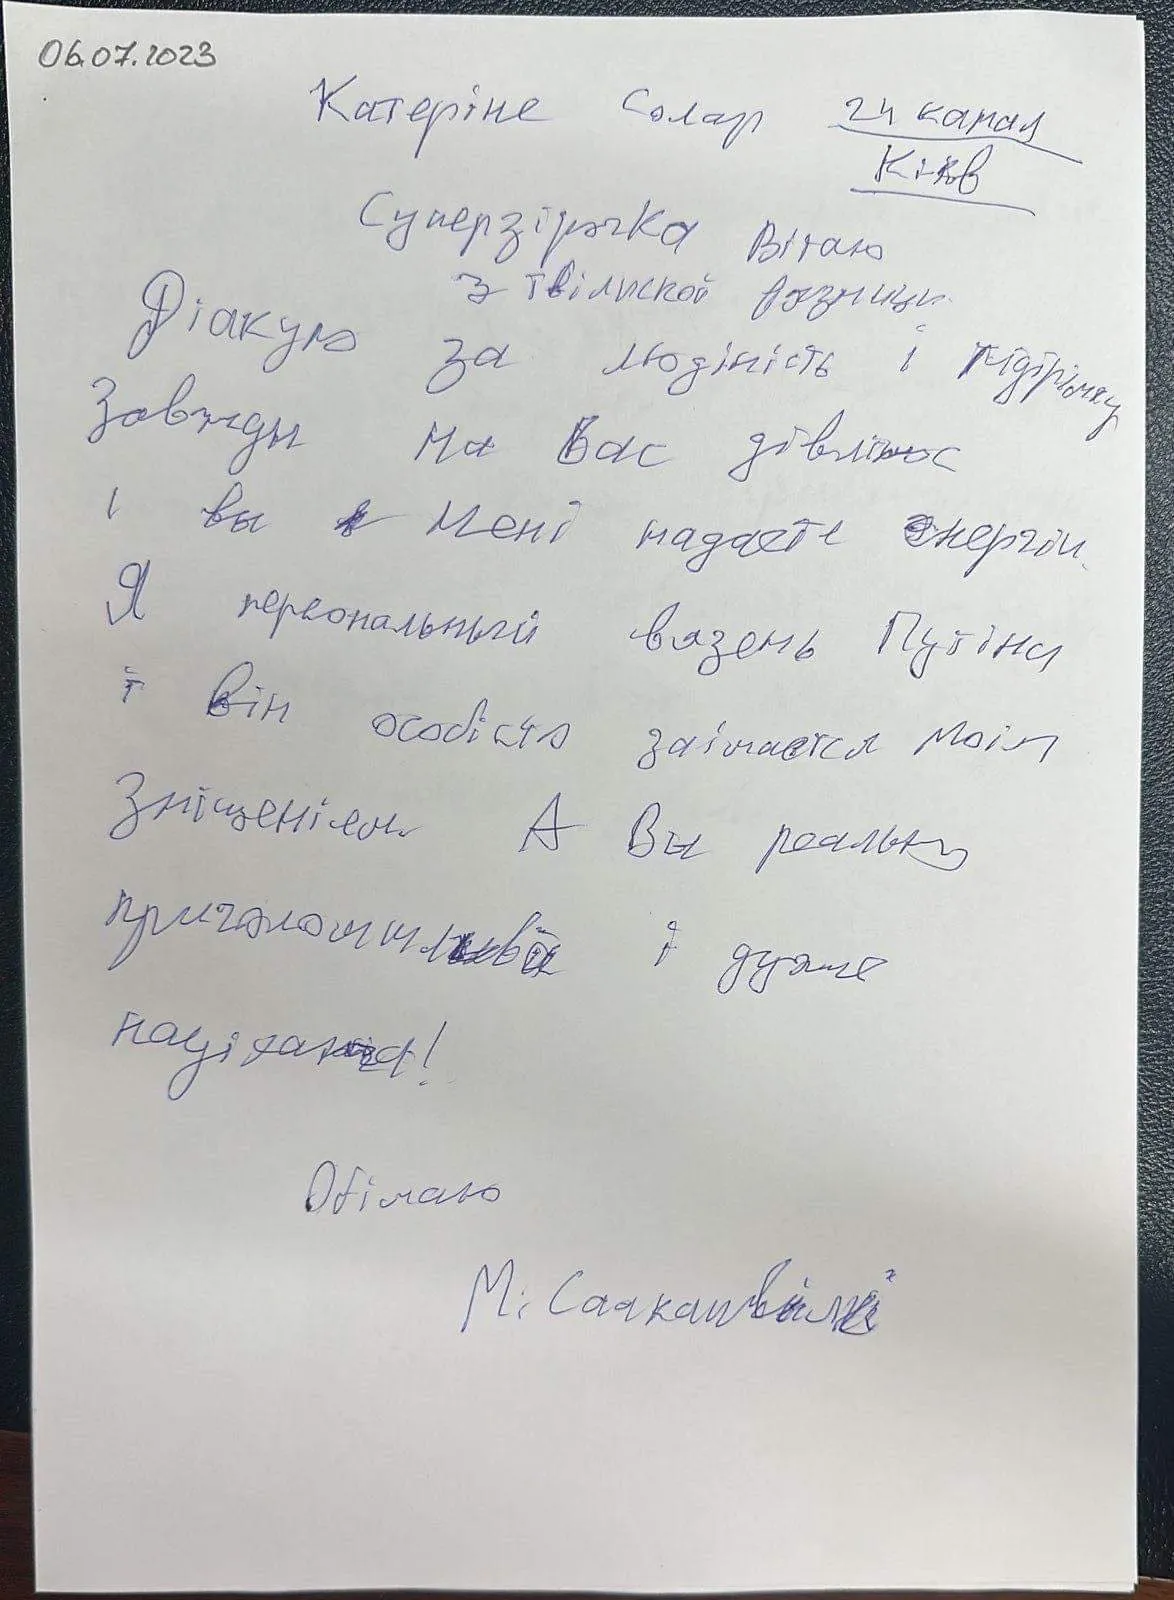 06.07.2023
Катеріне Солар 24 канал
Київ
Суперзірочка Вітаю
з твіліской вязници
Діакую за людіність і підрімку
Завжды на Вас дівлюс
і вы мені надаєте энергіи.
Я персональный вязень Путіна
і він особісто заімаєтся моім
зніщеніем А Вы реально
приголомшливі і дуже
Обімаю
М. Саакашвілі